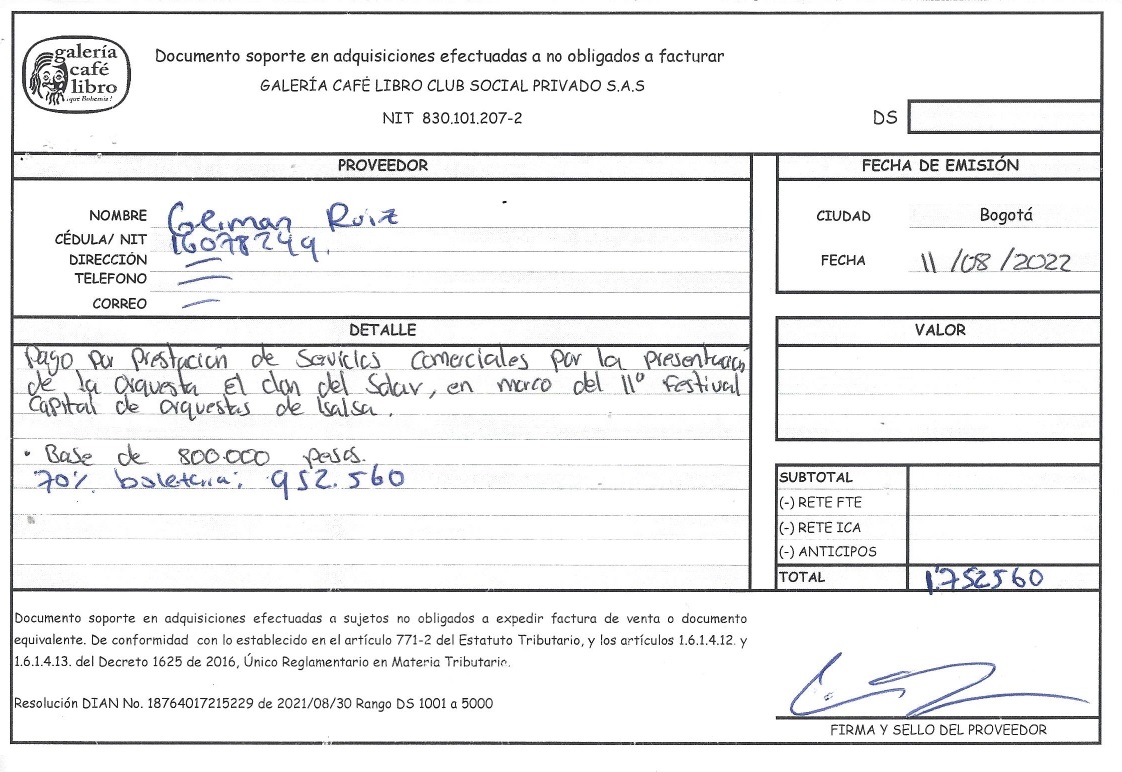 galería
café
libro
¡que Bohemia!
Documento soporte en adquisiciones efectuadas a no obligados a facturar
GALERÍA CAFÉ LIBRO CLUB SOCIAL PRIVADO S.A.S
NIT 830.101.207-2
DS
PROVEEDOR
FECHA DE EMISIÓN
NOMBRE Ruiz
CÉDULA/ NIT 16078249.
DIRECCIÓN —
TELEFONO —
CORREO —
CIUDAD Bogotá
FECHA 11/08/2022
DETALLE
VALOR
Pago por prestación de Servicios comerciales por la presentación
de la orquesta El clan del Solar, en marco del 11° Festival
Capital de orquestas de Salsa.
· Base de 800.000 pesos.
70% boleteria: 952.560
SUBTOTAL
(-) RETE FTE
(-) RETE ICA
(-) ANTICIPOS
TOTAL 1'752560
Documento soporte en adquisiciones efectuadas a sujetos no obligados a expedir factura de venta o documento
equivalente. De conformidad con lo establecido en el artículo 771-2 del Estatuto Tributario, y los artículos 1.6.1.4.12. y
1.6.1.4.13. del Decreto 1625 de 2016, Único Reglamentario en Materia Tributaria.
Resolución DIAN No. 18764017215229 de 2021/08/30 Rango DS 1001 a 5000
FIRMA Y SELLO DEL PROVEEDOR